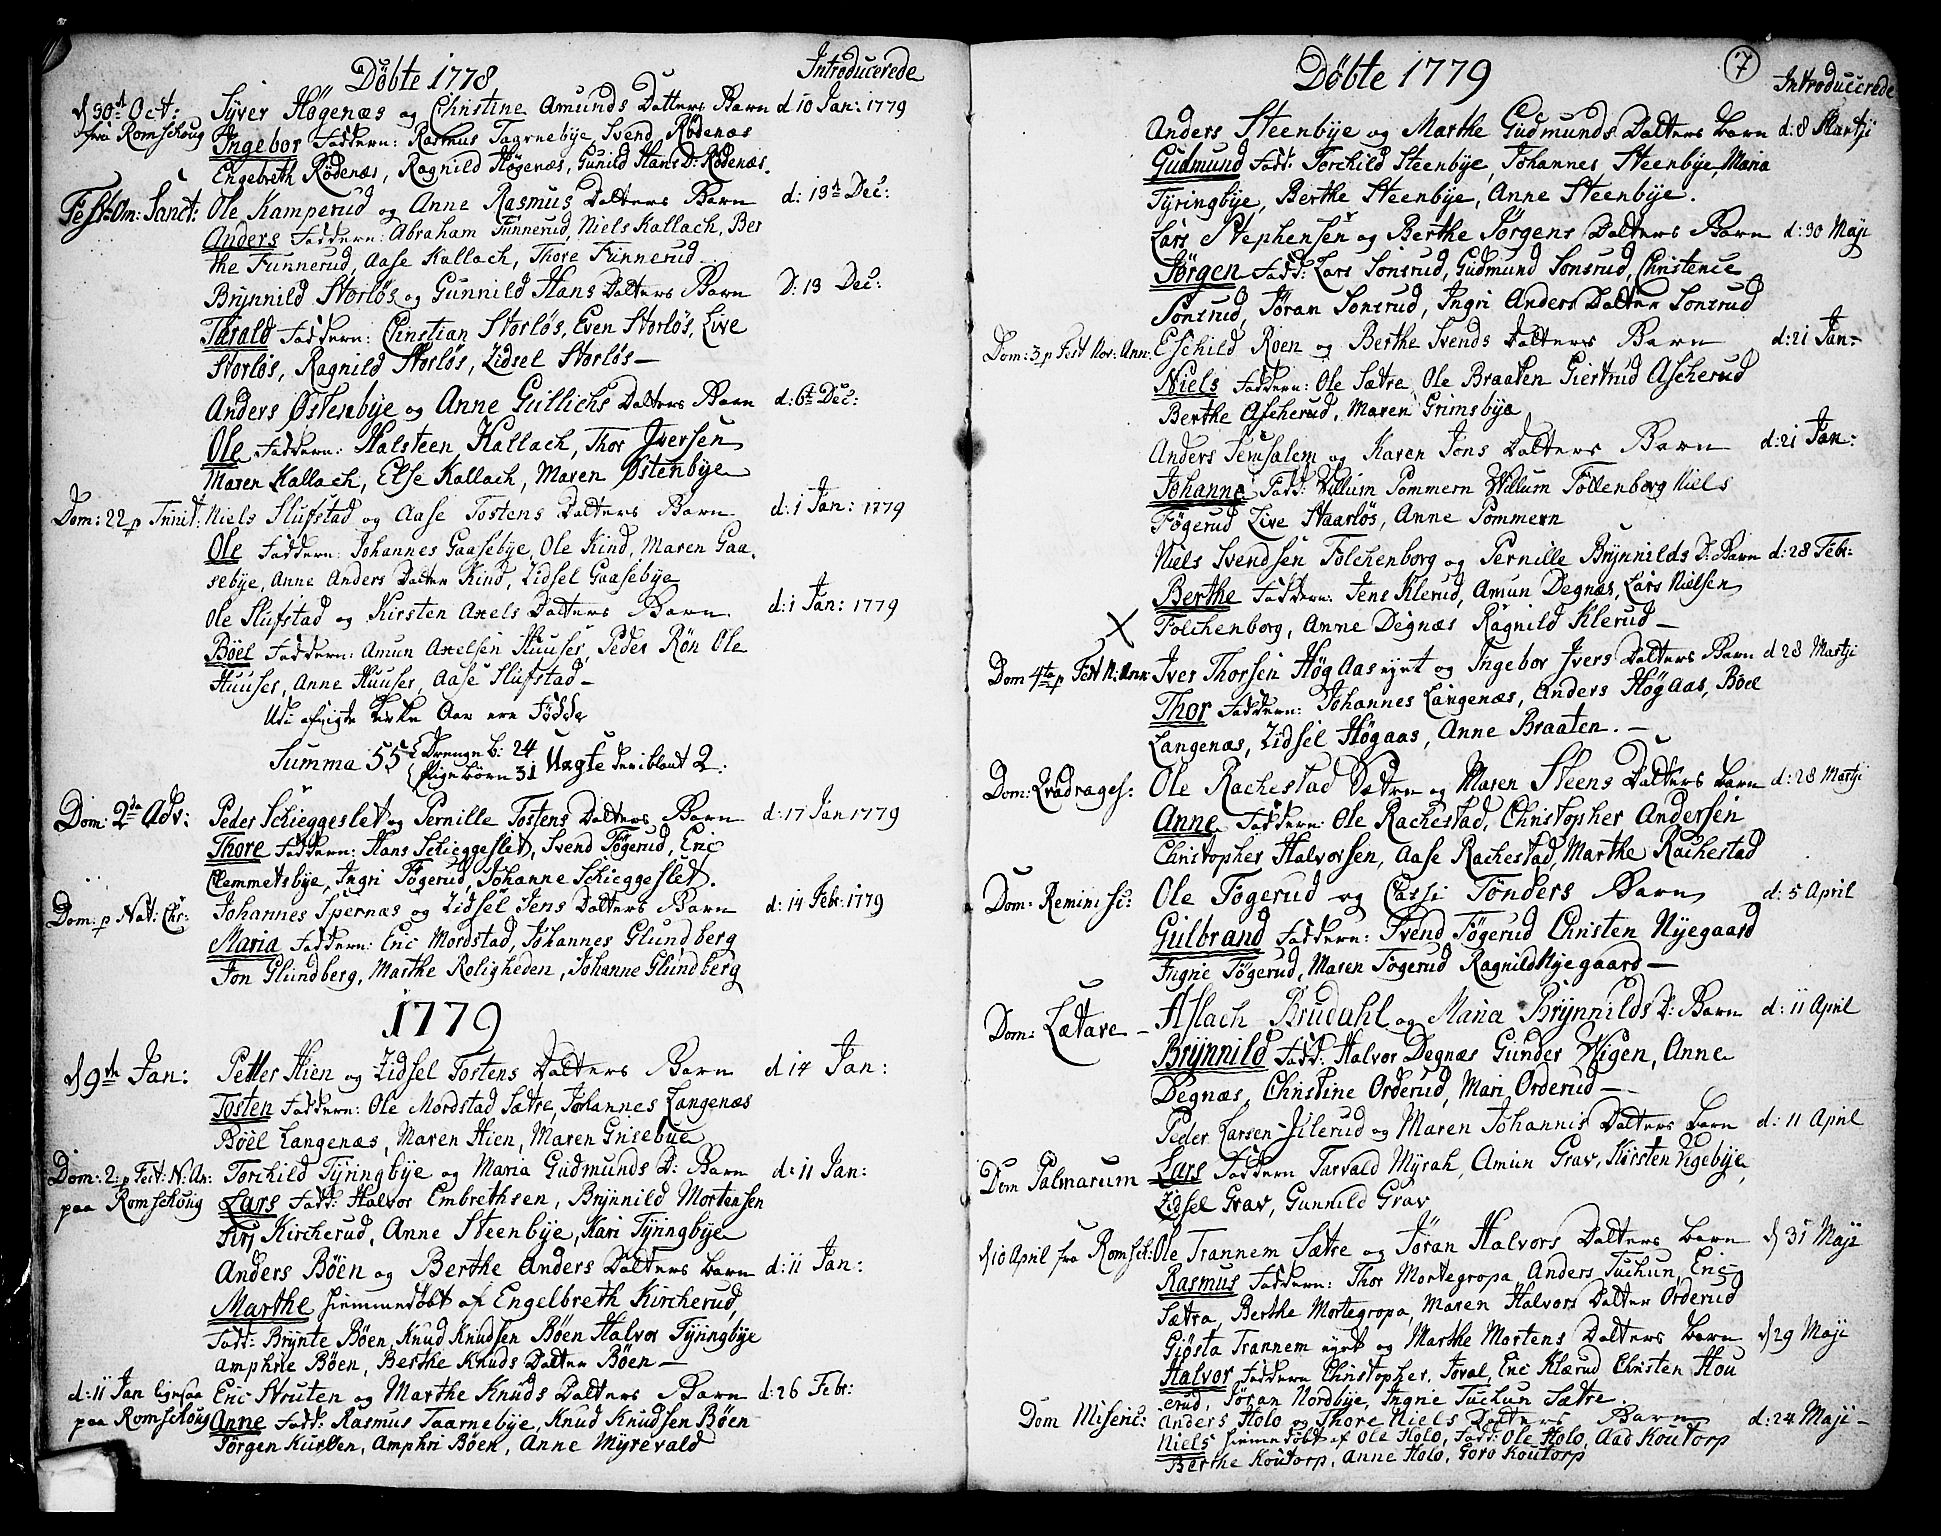 Döbte 1778
Introducerede
d 30t Oct: Syver Högenæs og Christine Amunds Datters Barn d 10 Jan: 1779
fra Romschoug Ingebor Faddern: Rasmus Taarnebye Svend Rödenæs
Engebreth Rödenæs, Ragnild Högenæs, Gunild Hans D: Rödenæs.
Fest: Om: Sanct: Ole Kamperud og Anne Rasmus Datters Barn d: 13t Dec:
Anders Faddern: Abraham Funnerud, Niels Kallach, Ber
the Funnerud, Aase Kallach, Thore Funnerud
Brynnild Storlös og Gunnild Hans Datters Barn D: 13 Dec:
Tarald Faddern: Christian Storlös, Even Storlös, Live
Storlös, Ragnild Storlös, Zidsel Storlös—
Anders Östenbye og Anne Gullichs Datters Barn d: 6t Dec:
Ole Faddern: Halsteen Kallach, Thor Iversen
Maren Kallach, Else Kallach, Maren Östenbye
Dom: 22 p Trinit: Niels Slufstad og Aase Tostens Datters Barn d: 1 Jan: 1779
Ole Faddern: Johannes Gaasebye, Ole Kind, Maren Gaa-
sebye, Anne Anders Datter Kind, Zidsel Gaasebye
Ole Slufstad og Kirsten Axels Datters Barn d: 1 Jan: 1779
Böel Faddern: Amun Axelsen Huuser, Peder Rön Ole
Huuser, Anne Huuser, Aase Slufstad—
Udi afvigte Kirke Aar ere Födde
Summa 55 { Drenge b: 24
{ Pige börn 31 Uægte deriblant 2:
Dom: 2da Adv: Peder Schieggeslet og Pernille Tostens Datters Barn d: 17 Jan 1779
Thore Faddern: Hans Schieggeslet, Svend Fögerud, Eric
Clemmetsbye, Ingri Fögerud, Johanne Schieggeslet.
Dom: p Nat: Chr: Johannes Spernæs og Zidsel Jens Datters Barn d: 14 Febr: 1779
Maria Faddern: Eric Mordstad, Johannes Glundberg
Jon Glundberg, Marthe Roligheden, Johanne Glundberg
1779
d 9th Jan: Petter Hien og Zidsel Tostens Datters Barn d 14 Jan:
Tosten Faddern: Ole Mordstad Sætre, Johannes Langenæs
Böel Langenæs, Maren Hien, Maren Grisebye
Dom: 2: p Fest: N: An: Torchild Tyringbye og Maria Gudmunds D: Barn d: 11 Jan:
paa Romschoug Lars Fadd: Halvor Embrethsen, Brynnild Mortensen
Siri Kircherud, Anne Steenbye, Kari Tyringbye
Anders Böen og Berthe Anders Datters Barn d: 11 Jan:
Marthe hiemmedöbt af Engelbreth Kircherud
Fadd: Brynte Böen, Knud Knudsen Böen Halvor Tyringbye
Amphrie Böen, Berthe Knuds Datter Böen—
d: 11 Jan ligesaa Eric Struten og Marthe Knuds Datters Barn d: 26 Febr:
paa Romschoug Anne Fadd: Rasmus Taarnebye, Knud Knudsen Böen
Jörgen Kursten, Amphri Böen, Anne Myrevald
Döbte 1779
7
Introducerede
Anders Steenbye og Marthe Gudmunds Datters Barn d: 8 Martji
Gudmund Fadd: Torchild Steenbye, Johannes Steenbye, Maria
Tyringbye, Berthe Steenbye, Anne Steenbye.
Lars Stephensen og Berthe Jörgens Datters Barn d: 30 Maji
Jörgen Fadd: Lars Sonsrud, Gudmund Sonsrud, Christence
Sonsrud, Jöran Sonsrud, Ingri Anders Datter Sonsrud
Dom: 3 p Fest Nov: Ann: Eschild Roen og Berthe Svends Datters Barn d: 21 Jan-
Niels Faddern: Ole Sætre, Ole Braaten Giertrud Ascherud
Berthe Ascherud, Maren Grimsbye
Anders Jerusalem og Karen Jons Datters Barn d: 21 Jan:
Johanne Fadd: Willum Pommern Willum Follenborg Niels
Fögerud Live Staarlös, Anne Pommern
Niels Svendsen Folchenborg og Pernille Brynnilds D: Barn d: 28 Febr:
Berthe Faddern: Jens Klerud, Amun Degnæs, Lars Nielsen
X Folchenborg, Anne Degnæs Ragnild Klerud—
Dom 4te p Fest N: Ann: Iver Thorsen Högaas rynt og Ingebor Ivers Datters Barn d 28 Martji
Thor Faddern: Johannes Langenæs, Anders Högaas, Böel
Langenæs, Zidsel Högaas, Anne Braaten.—
Dom: Qvadrages: Ole Rachestad Sætre og Maren Steens Datters Barn d: 28 Martji
Anne Faddern: Ole Rachestad, Christopher Andersen
Christopher Halvorsen, Aase Rachestad, Marthe Rachestad
Dom: Reminisc: Ole Fögerud og Cassi Tönders Barn d: 5 April
Gulbrand Faddern: Svend Fögerud Christen Nyegaard
Ingrie Fögerud, Maren Fögerud Ragnild Nyegaard—
Dom: Lætare— Aslach Brudahl og Maria Brynnilds D: Barn d: 11 April
Brynnild Fadd: Halvor Degnæs Gunder Wigen, Anne
Degnæs, Christine Orderud, Mari Orderud—
Peder Larsen Jilerud og Maren Johannis Datters Barn d: 11 April
Dom Palmarum Lars Faddern Tarvald Myrah, Amun Grav, Kirsten Vigebye,
Zidsel Grav, Gunnild Grav
d 10 April fra Romsch: Ole Trannem Sætre og Jöran Halvors Datters Barn d 31 Maji
Rasmus Faddern: Thor Mortegropa, Anders Tuchun, Eric
Sætra, Berthe Mortegropa, Maren Halvors Datter Orderud
Giösta Trannem rynt og Marthe Mortens Datters Barn d 29 Maji
Halvor Faddern Christopher, Joval, Eric Klærud Christen Hou
erud, Jöran Nordbye, Ingrie Tuchun Sætre
Dom Miseric: Anders Holo og Thore Niels Datters Barn d: 24 Maji—
Niels hiemmedöbt af Ole Holo, Fadd: Ole Holo, Aad Koutorp
Berthe Koutorp, Anne Holo, Goro Koutorp